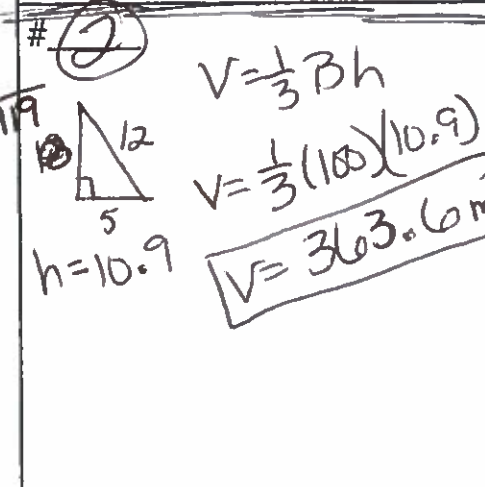 # 2
V=⅓Bh
119
12
5
V=⅓(100)(10.9)
h=10.9
V=363.6m